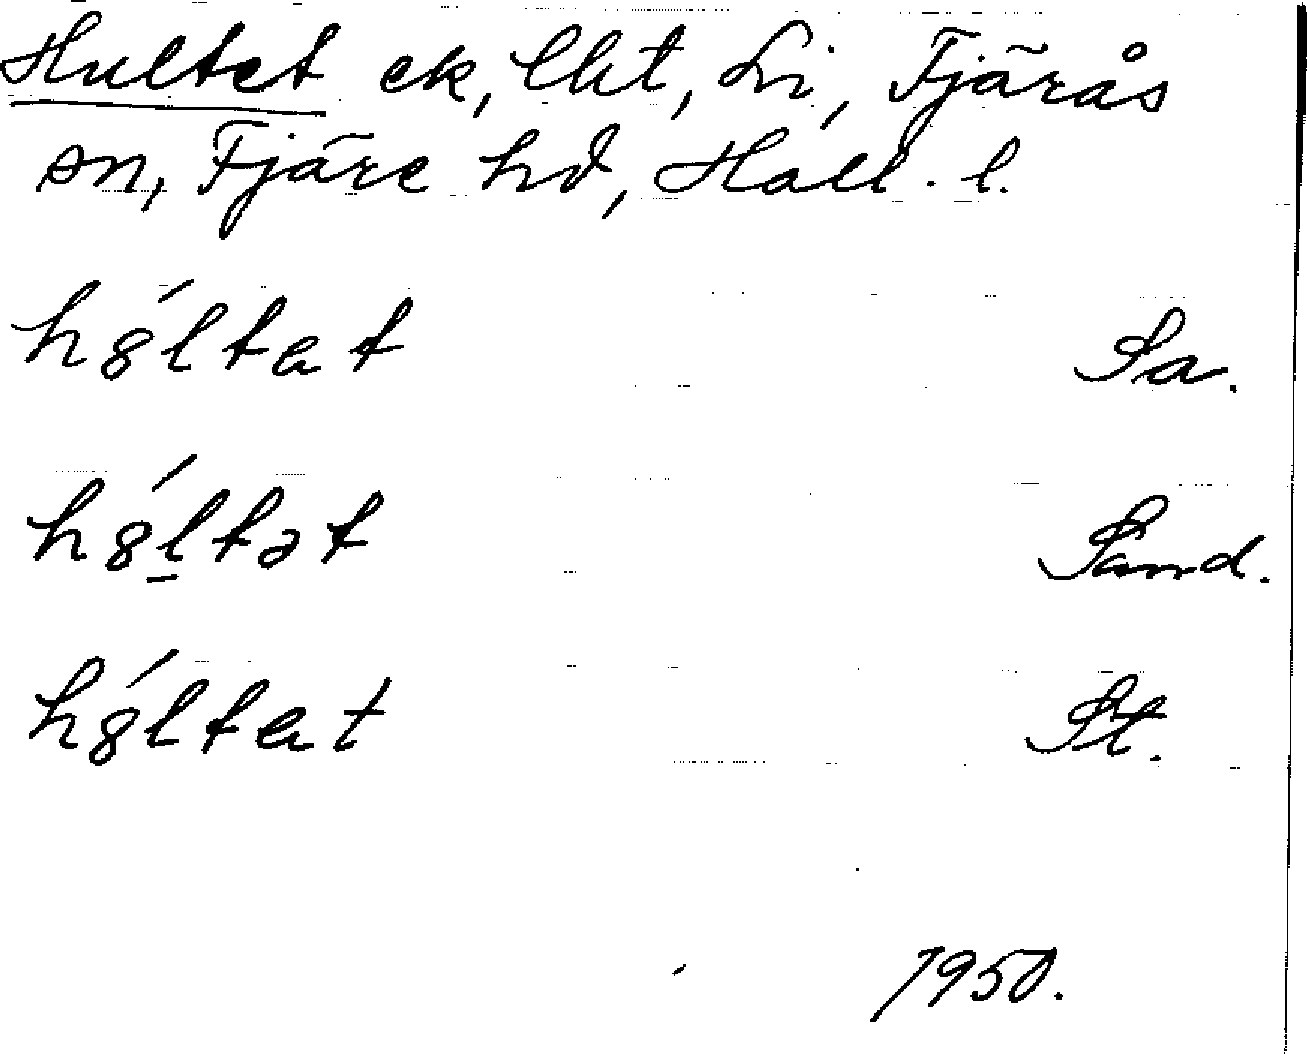 Hultet ek, lht, Li, Fjärås
sn, Fjäre hd, Hall. l.
hóltat Sa.
hóltət Sand.
hóltat St.
1950.